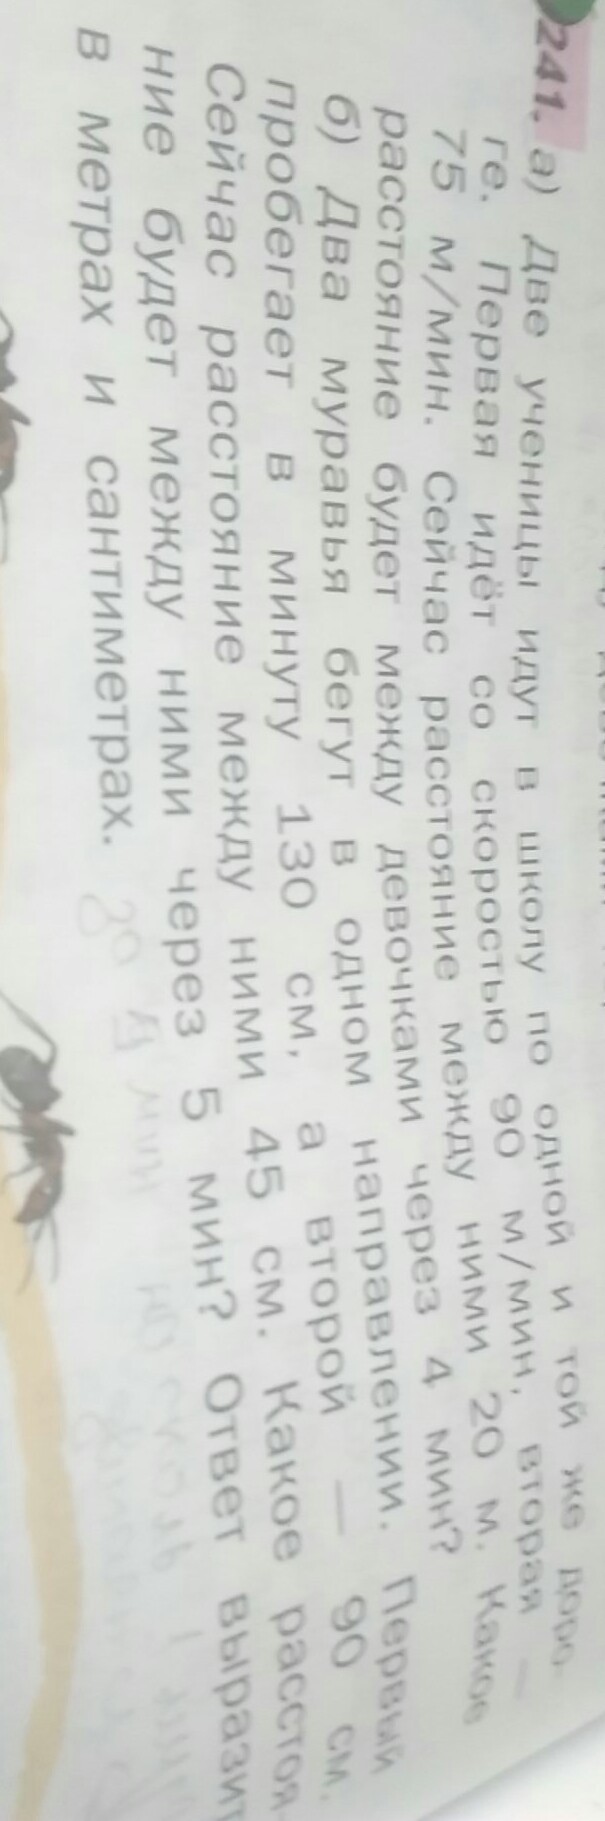 241. а) Две ученицы идут в школу по одной и той же доро-
ге. Первая идёт со скоростью 90 м/мин, вторая —
75 м/мин. Сейчас расстояние между ними 20 м. Какое
расстояние будет между девочками через 4 мин?
б) Два муравья бегут в одном направлении. Первый
пробегает в минуту 130 см, а второй — 90 см.
Сейчас расстояние между ними 45 см. Какое расстоя-
ние будет между ними через 5 мин? Ответ вырази
в метрах и сантиметрах.